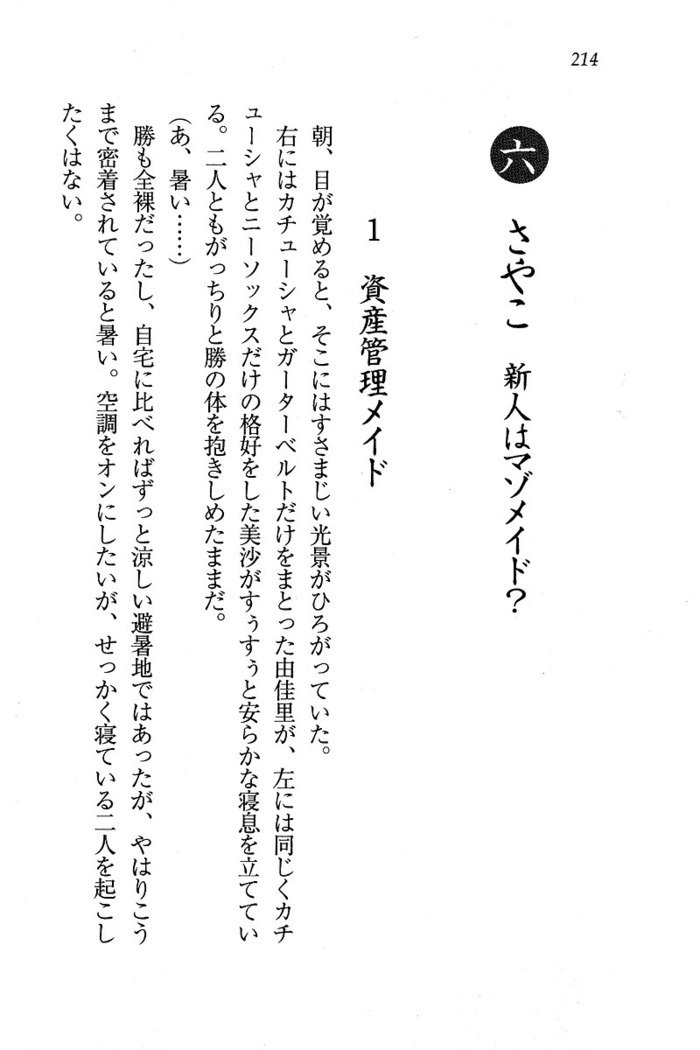 214
六 さやこ 新人はマゾメイド?
1 資産管理メイド
朝、目が覚めると、そこにはすさまじい光景がひろがっていた。
右にはカチューシャとガーターベルトだけをまとった由佳里が、左には同じくカチ
ューシャとニーソックスだけの格好をした美沙がすぅすぅと安らかな寝息を立ててい
る。二人ともがっちりと勝の体を抱きしめたままだ。
(あ、暑い……)
勝も全裸だったし、自宅に比べればずっと涼しい避暑地ではあったが、やはりこう
まで密着されていると暑い。空調をオンにしたいが、せっかく寝ている二人を起こし
たくはない。